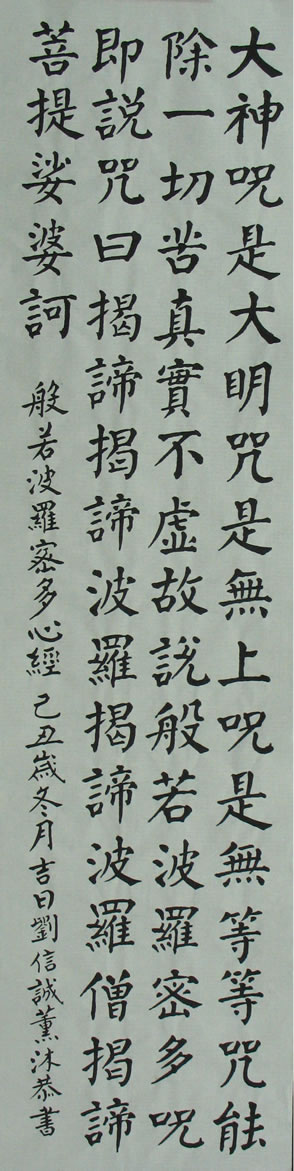 大神呪是大明咒是無上呪是無等等咒能
除一切苦真實不虛故說般若波羅密多呪
即說咒曰揭諦揭諦波羅揭諦波羅僧揭諦
菩提娑婆訶
般若波羅密多心經 己丑歲冬月吉日劉信誠薰沐恭書